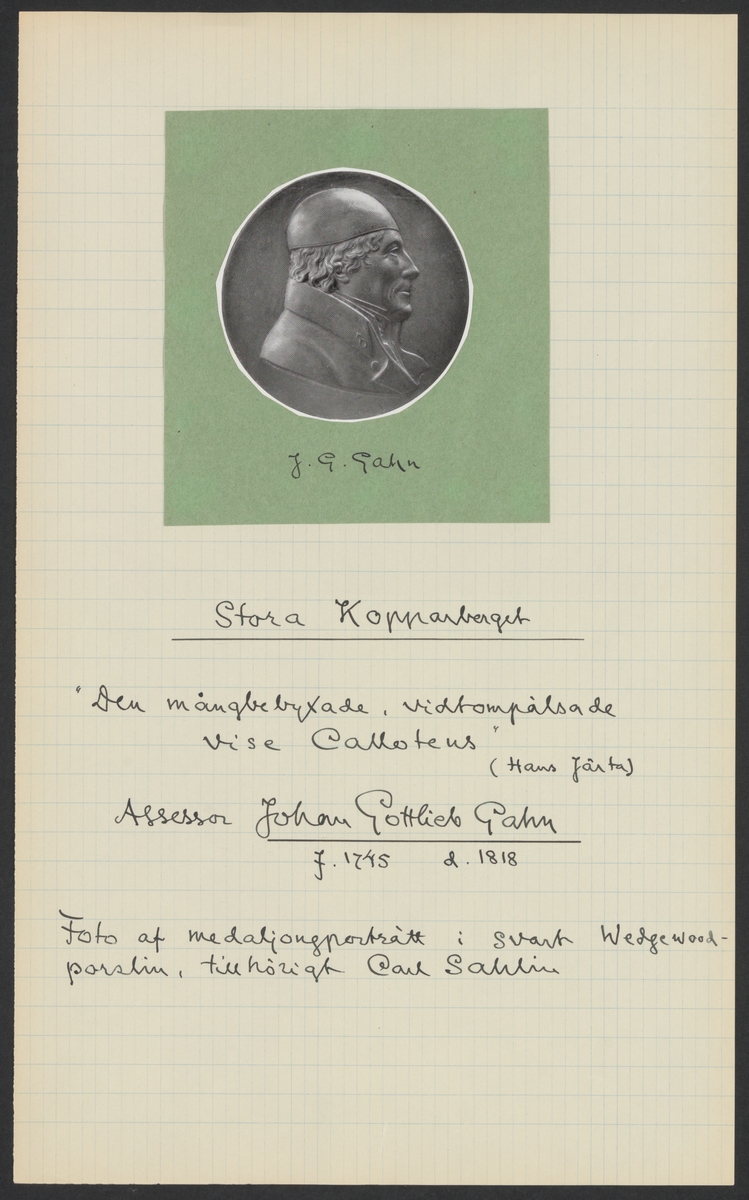 J. G. Gahn
Stora Kopparberget
"Den mångbebyxade, vidtompälsade
vise Callotens"
(Hans Järta)
Assessor Johan Gottlieb Gahn
f. 1745 d. 1818
Foto af medaljongporträtt i svart Wedgewood-
porslin, tillhörigt Carl Sahlin